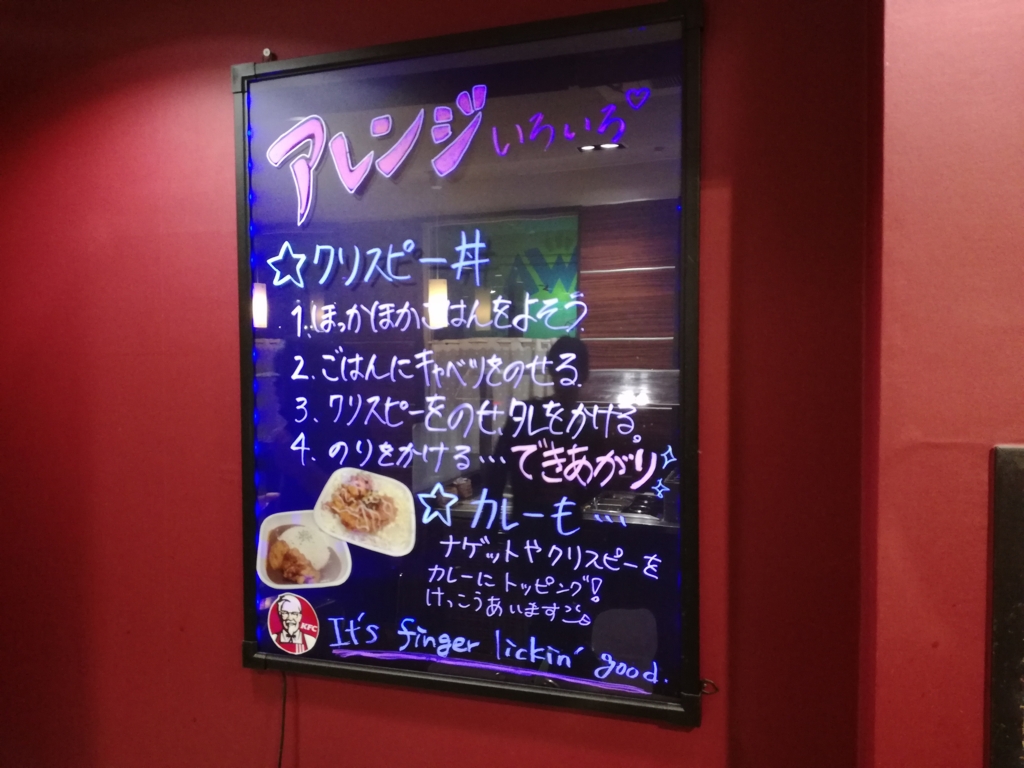 アレンジいろいろ♡
☆クリスピー丼
1. ほっかほかごはんをよそう
2. ごはんにキャベツをのせる
3. クリスピーをのせ、タレをかける。
4. のりをかける…できあがり
☆カレーも…
ナゲットやクリスピーを
カレーにトッピング!
けっこうあいます
KFC
It's finger lickin' good.